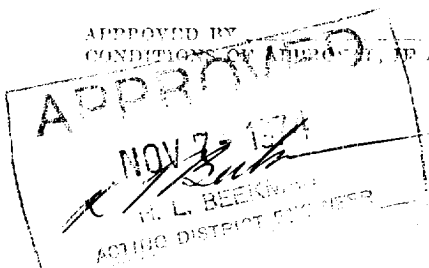 APPROVED BY
CONDITIONS OF APPROVAL, IF
APPROVED
NOV 7 - 1974
H. L. BEEKMAN
ACTING DISTRICT ENGINEER